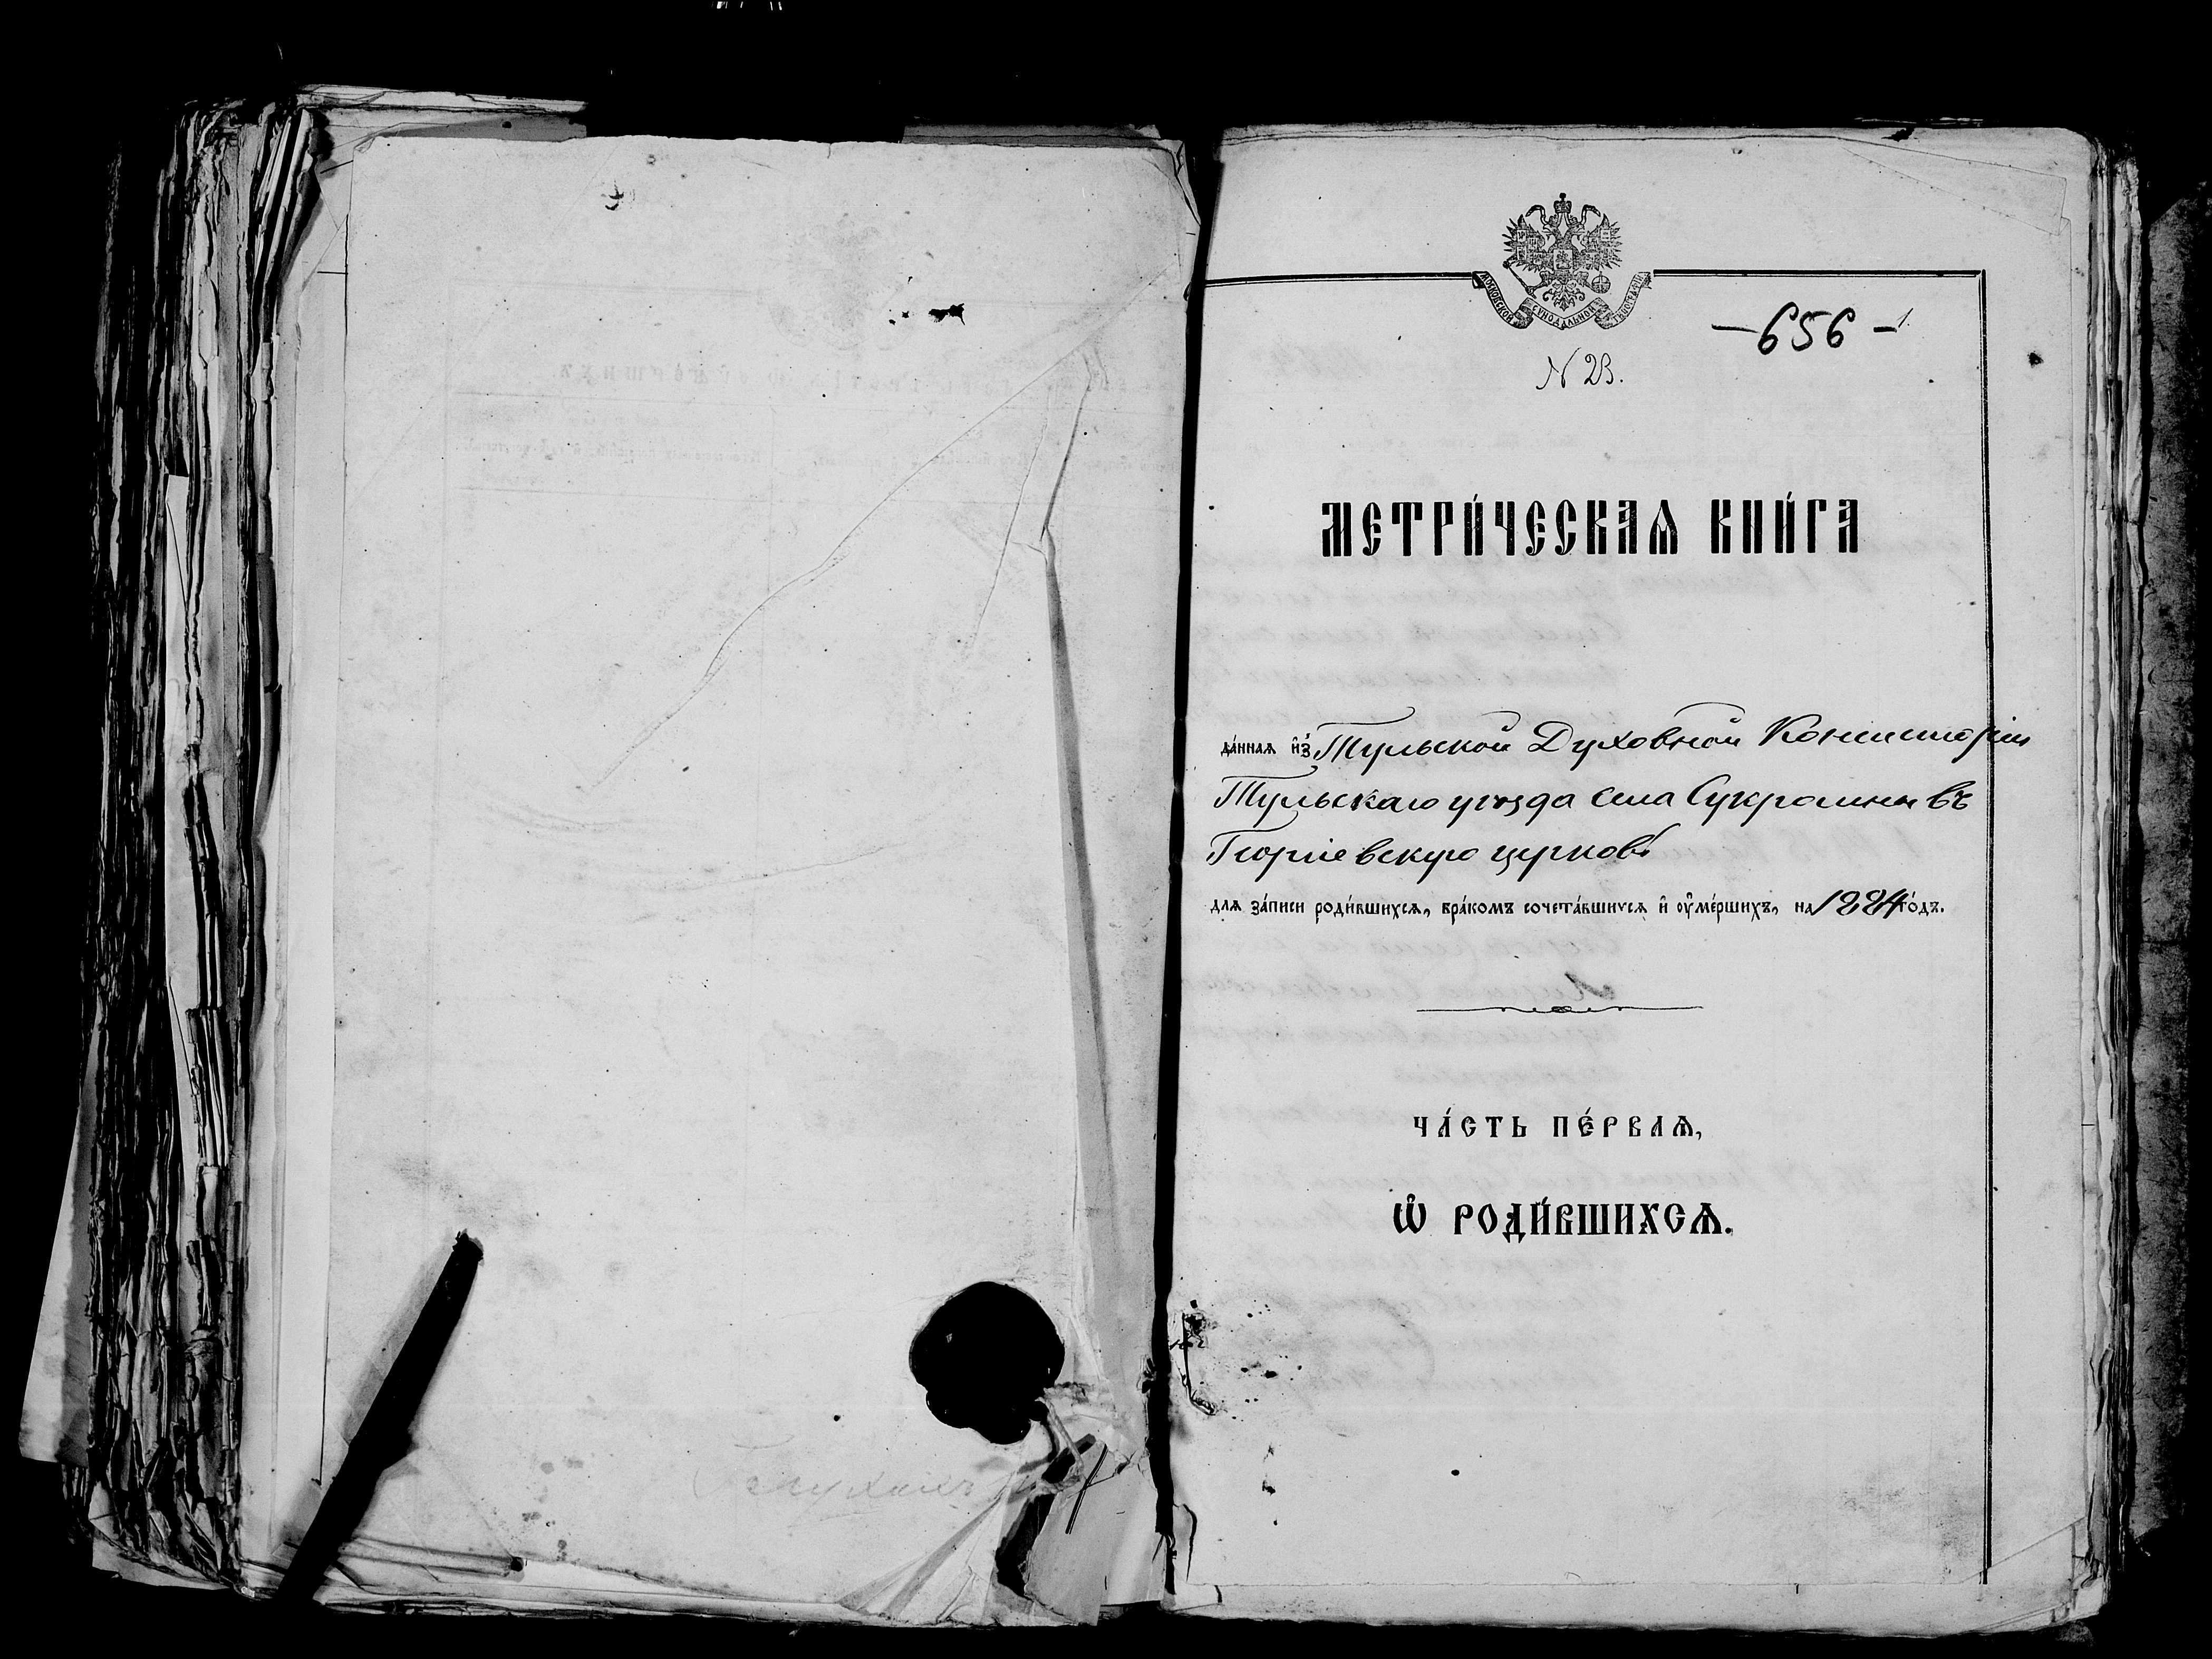 МОСКОВСКОЙ СѴНОДАЛЬНОЙ ТѴПОГРАФІИ
– 656 – 1.
N 23.
МЕТРИ́ЧЕСКАѦ КНИ́ГА
да́ннаѧ и҆з̾ Тульской Духовной Консисторіи
Тульскаго уѣзда села Сукромны въ
Георгіевскую церковь
для за́писи роди́вшихсѧ, бра́комъ сочета́вшихсѧ и҆ ѹ҆ме́ршихъ, на 1884 го́дъ.
ЧА́СТЬ ПЕ́РВАѦ,
Ѽ РОДИ́ВШИХСѦ.